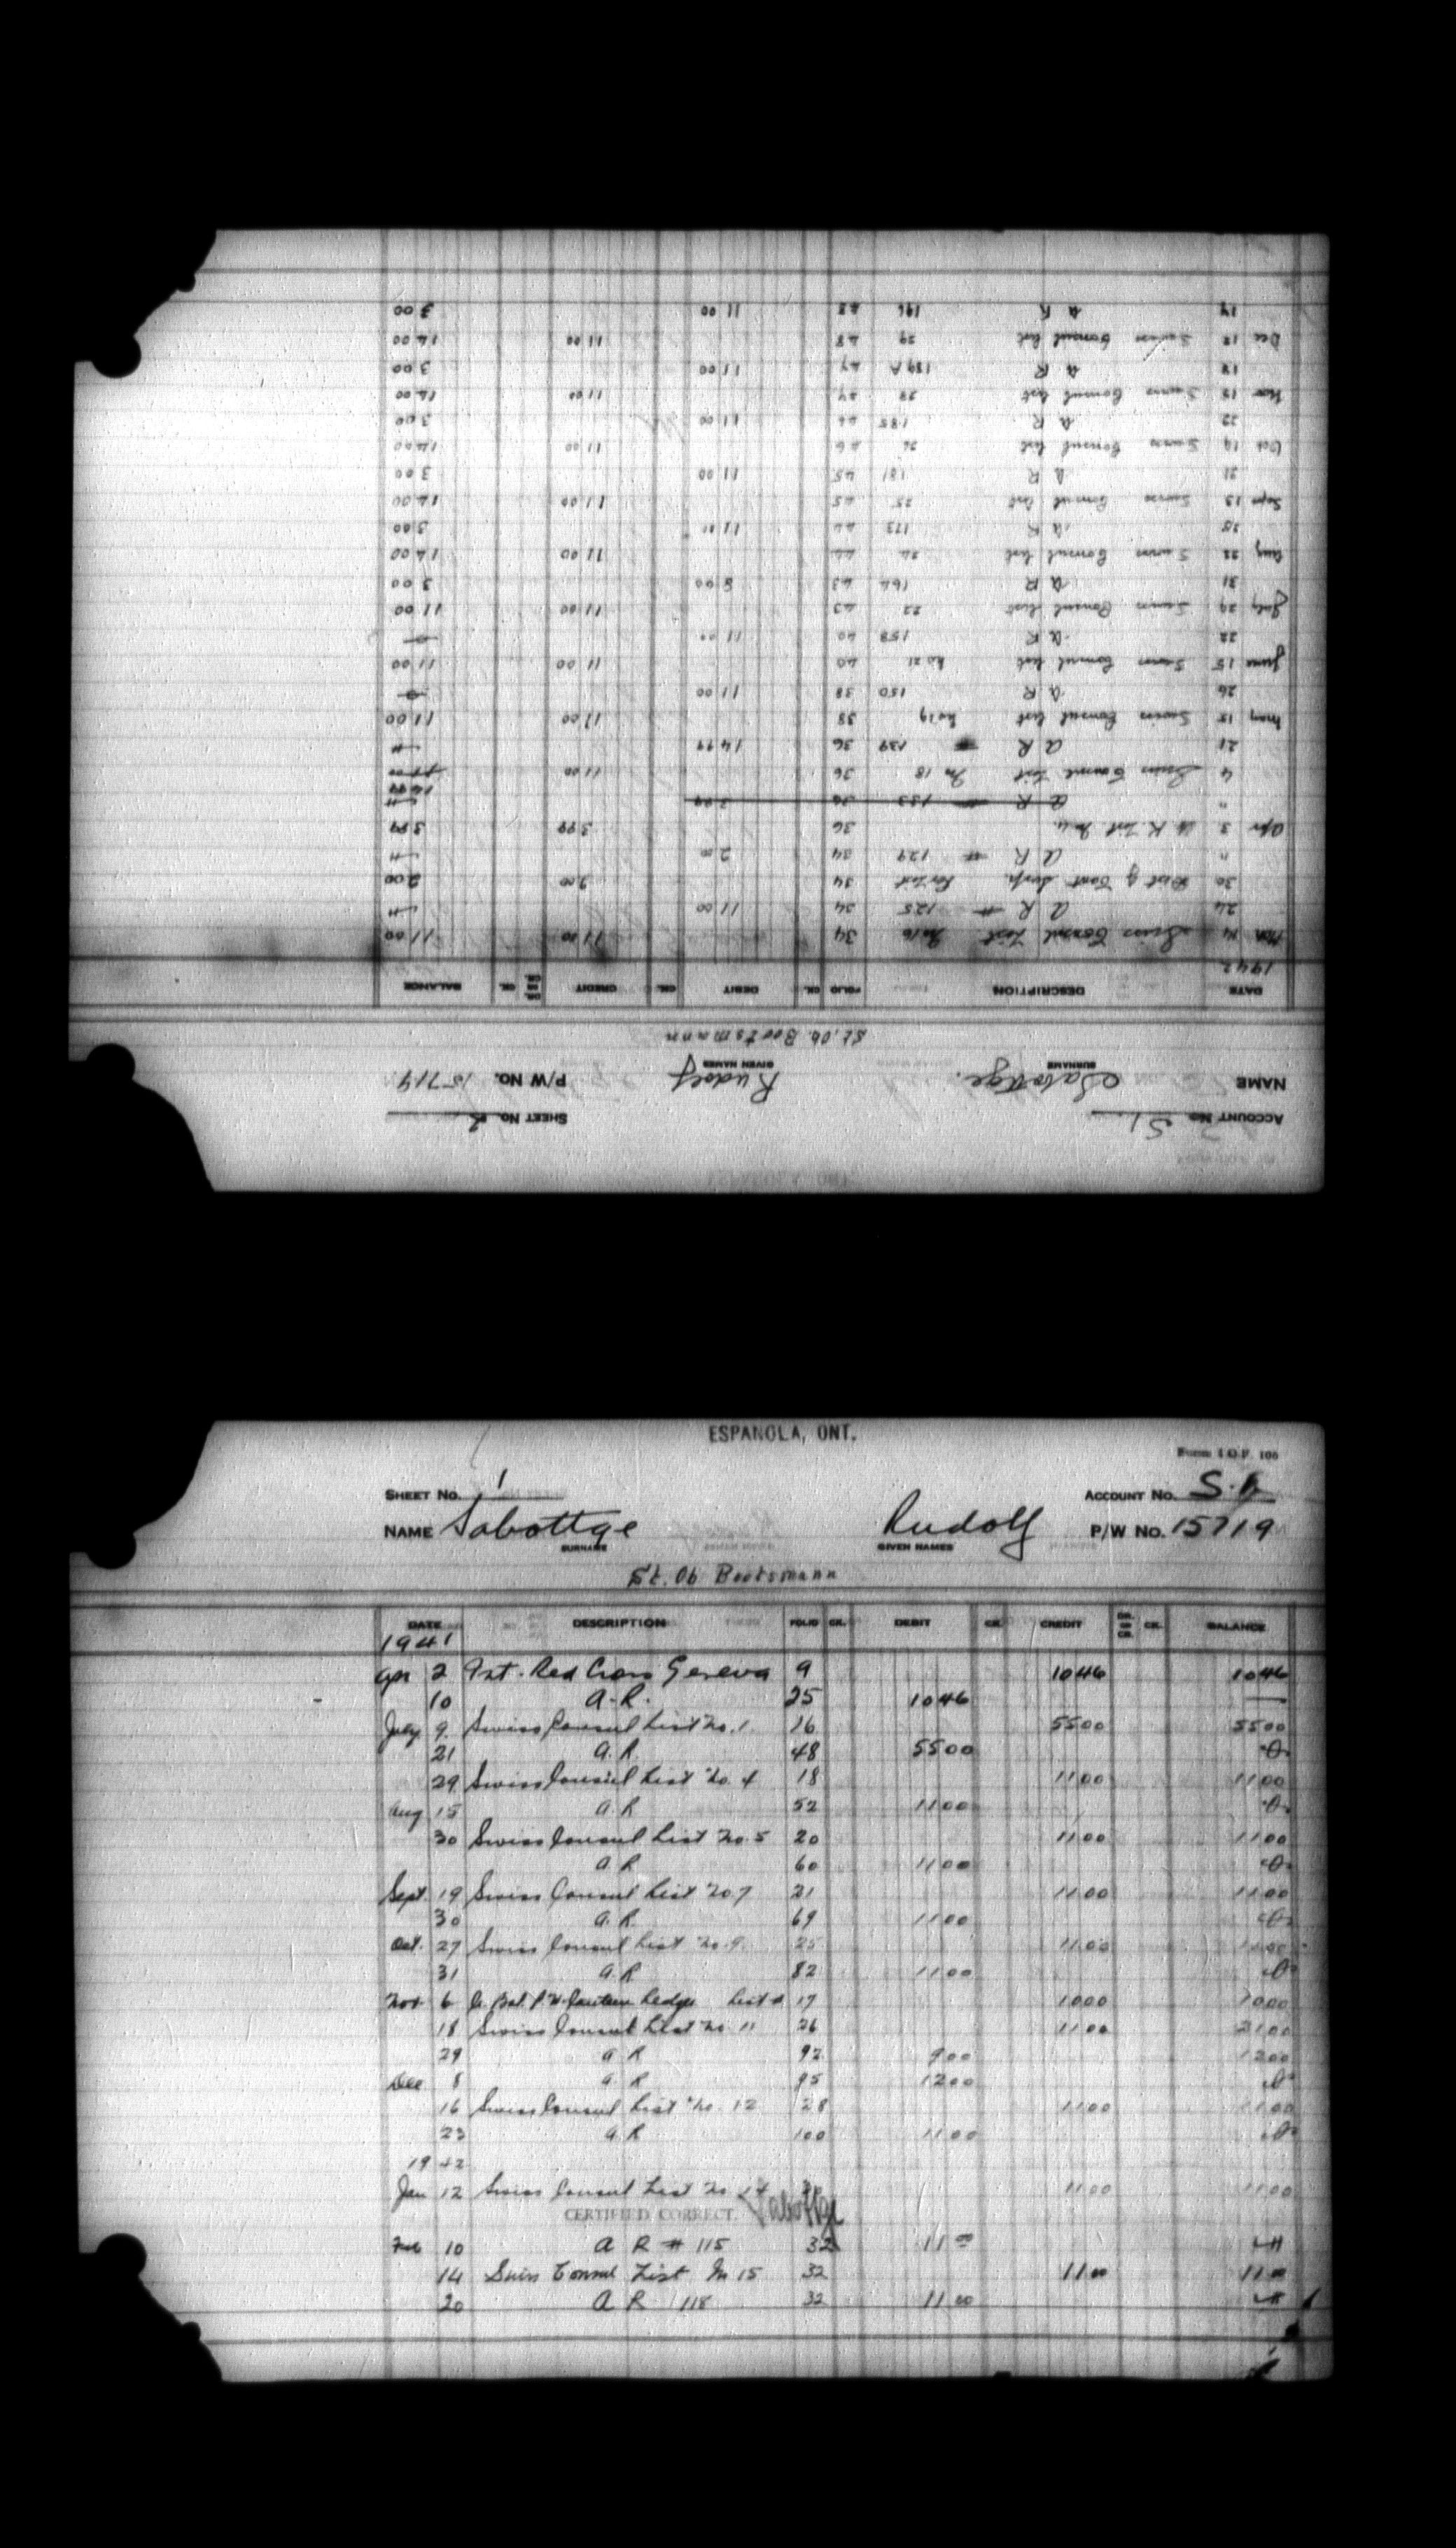 ACCOUNT No. S1 SHEET No. 2
NAME Sabottge. Rudolf P/W No. 15719
SURNAME GIVEN NAMES
St. Ob. Bootsmann
DATE DESCRIPTION FOLIO CK. DEBIT CK. CREDIT DR. OR CR. CK. BALANCE
1942
Mar 14 Swiss Consul List No 16 34 11 00 11 00
24 A R # 125 34 11 00
30 Dist of Cant Surp. Per List 34 2 00 2 00
" A R # 129 34 2 00
Apr 3 U.K. List No 4 36 3 99 3 99
" A R # 133 36 3 99
4 Swiss Consul List No 18 36 11 00 14 99
21 A R # 139 36 14 99
May 15 Swiss Consul List No 19 38 11 00 11 00
26 A R 150 38 11 00
June 15 Swiss Consul List No 21 40 11 00 11 00
22 A R 158 40 11 00
July 29 Swiss Consul List 22 43 11 00 11 00
31 A R 164 43 8 00 3 00
Aug 22 Swiss Consul List 24 44 11 00 14 00
25 A R 173 44 11 00 3 00
Sept 15 Swiss Consul List 25 45 11 00 14 00
21 A R 181 45 11 00 3 00
Oct 19 Swiss Consul List 26 46 11 00 14 00
22 A R 185 46 11 00 3 00
Nov 13 Swiss Consul List 28 47 11 00 14 00
18 A R 189A 47 11 00 3 00
Dec 12 Swiss Consul List 29 48 11 00 14 00
19 A R 196 48 11 00 3 00
ESPANOLA, ONT.
Form I.O.P. 106
SHEET No. 1 ACCOUNT No. S.1
NAME Sabottge Rudolf P/W No. 15719
SURNAME GIVEN NAMES
St. Ob Bootsmann
DATE DESCRIPTION FOLIO CK. DEBIT CK. CREDIT DR. OR CR. CK. BALANCE
1941
Apr 2 Int. Red Cross Geneva 9 10 46 10 46
10 A.R. 25 10 46 —
July 9 Swiss Consul List No. 1 16 55 00 55 00
21 A.R. 48 55 00 0
29 Swiss Consul List No. 4 18 11 00 11 00
Aug 15 A.R 52 11 00 0
30 Swiss Consul List No. 5 20 11 00 11 00
A.R 60 11 00 0
Sept. 19 Swiss Consul List No 7 21 11 00 11 00
30 A.R. 69 11 00 0
Oct. 27 Swiss Consul List No. 9 25 11 00 11 00
31 A.R 82 11 00 0
Nov 6 Bal P.W. Canteen Ledger List 17 10 00 10 00
18 Swiss Consul List No 11 26 11 00 21 00
29 A R 92 9 00 12 00
Dec 8 A R 95 12 00 0
16 Swiss Consul List No. 12 28 11 00 11 00
23 A.R 100 11 00 0
1942
Jan 12 Swiss Consul List No 14 11 00 11 00
CERTIFIED CORRECT. Sabottge
Feb 10 A R # 115 32 11 00
14 Swiss Consul List No 15 32 11 00 11 00
20 A R 118 32 11 00